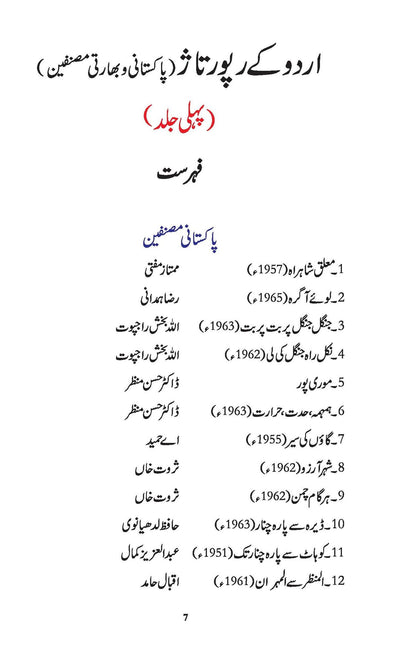 اردو کے رپورتاژ (پاکستانی و بھارتی مصنفین)
(پہلی جلد)
فہرست
پاکستانی مصنفین
1۔معلق شاہراہ (1957ء) ممتاز مفتی
2۔لوئے آگرہ (1965ء) رضا ہمدانی
3۔جنگل جنگل پربت پربت (1963ء) اللہ بخش راجپوت
4۔نکل راہ جنگل کی لی (1962ء) اللہ بخش راجپوت
5۔موری پور ڈاکٹر حسن منظر
6۔ہمہمہ، حدت، حرارت (1963ء) ڈاکٹر حسن منظر
7۔گاؤں کی سیر (1955ء) اے حمید
8۔شہر آرزو (1962ء) ثروت خاں
9۔ہر گام چمن (1962ء) ثروت خاں
10۔ڈیرہ سے پارہ چنار (1963ء) حافظ لدھیانوی
11۔کوہاٹ سے پارہ چنار تک (1951ء) عبدالعزیز کمال
12۔المنظر سے المہران (1961ء) اقبال حامد
7